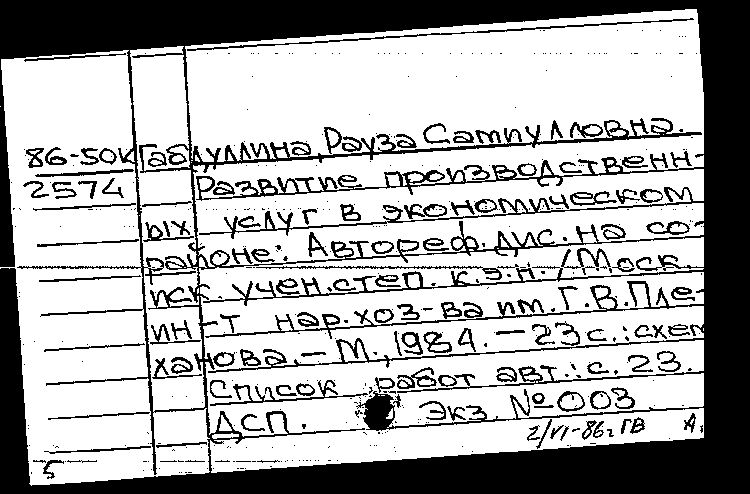 86-50К Габдуллина, Рауза Сатиулловна.
2574 Развитие производственн-
ых услуг в экономическом
районе: Автореф. дис. на со-
иск. учен. степ. к.э.н. /Моск.
ин-т нар. хоз-ва им. Г.В. Пле-
ханова. – М., 1984. – 23 с.: схем
Список работ авт.: с. 23.
ДСП. Экз. № 003.
2/VI-86г ГВ А.
5